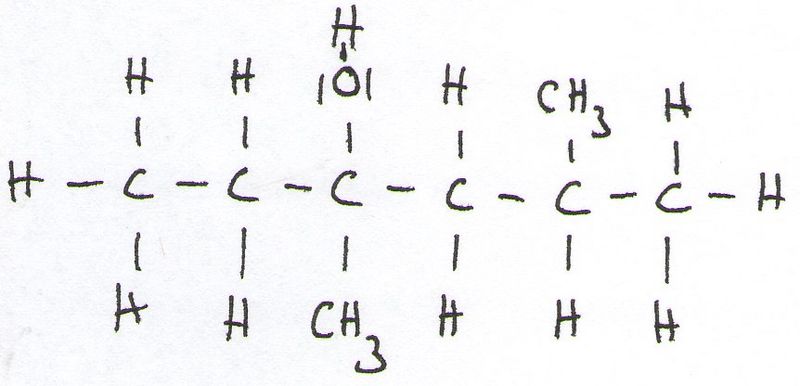 H
H H |O| H CH3 H
H - C - C - C - C - C - C - H
H H CH3 H H H